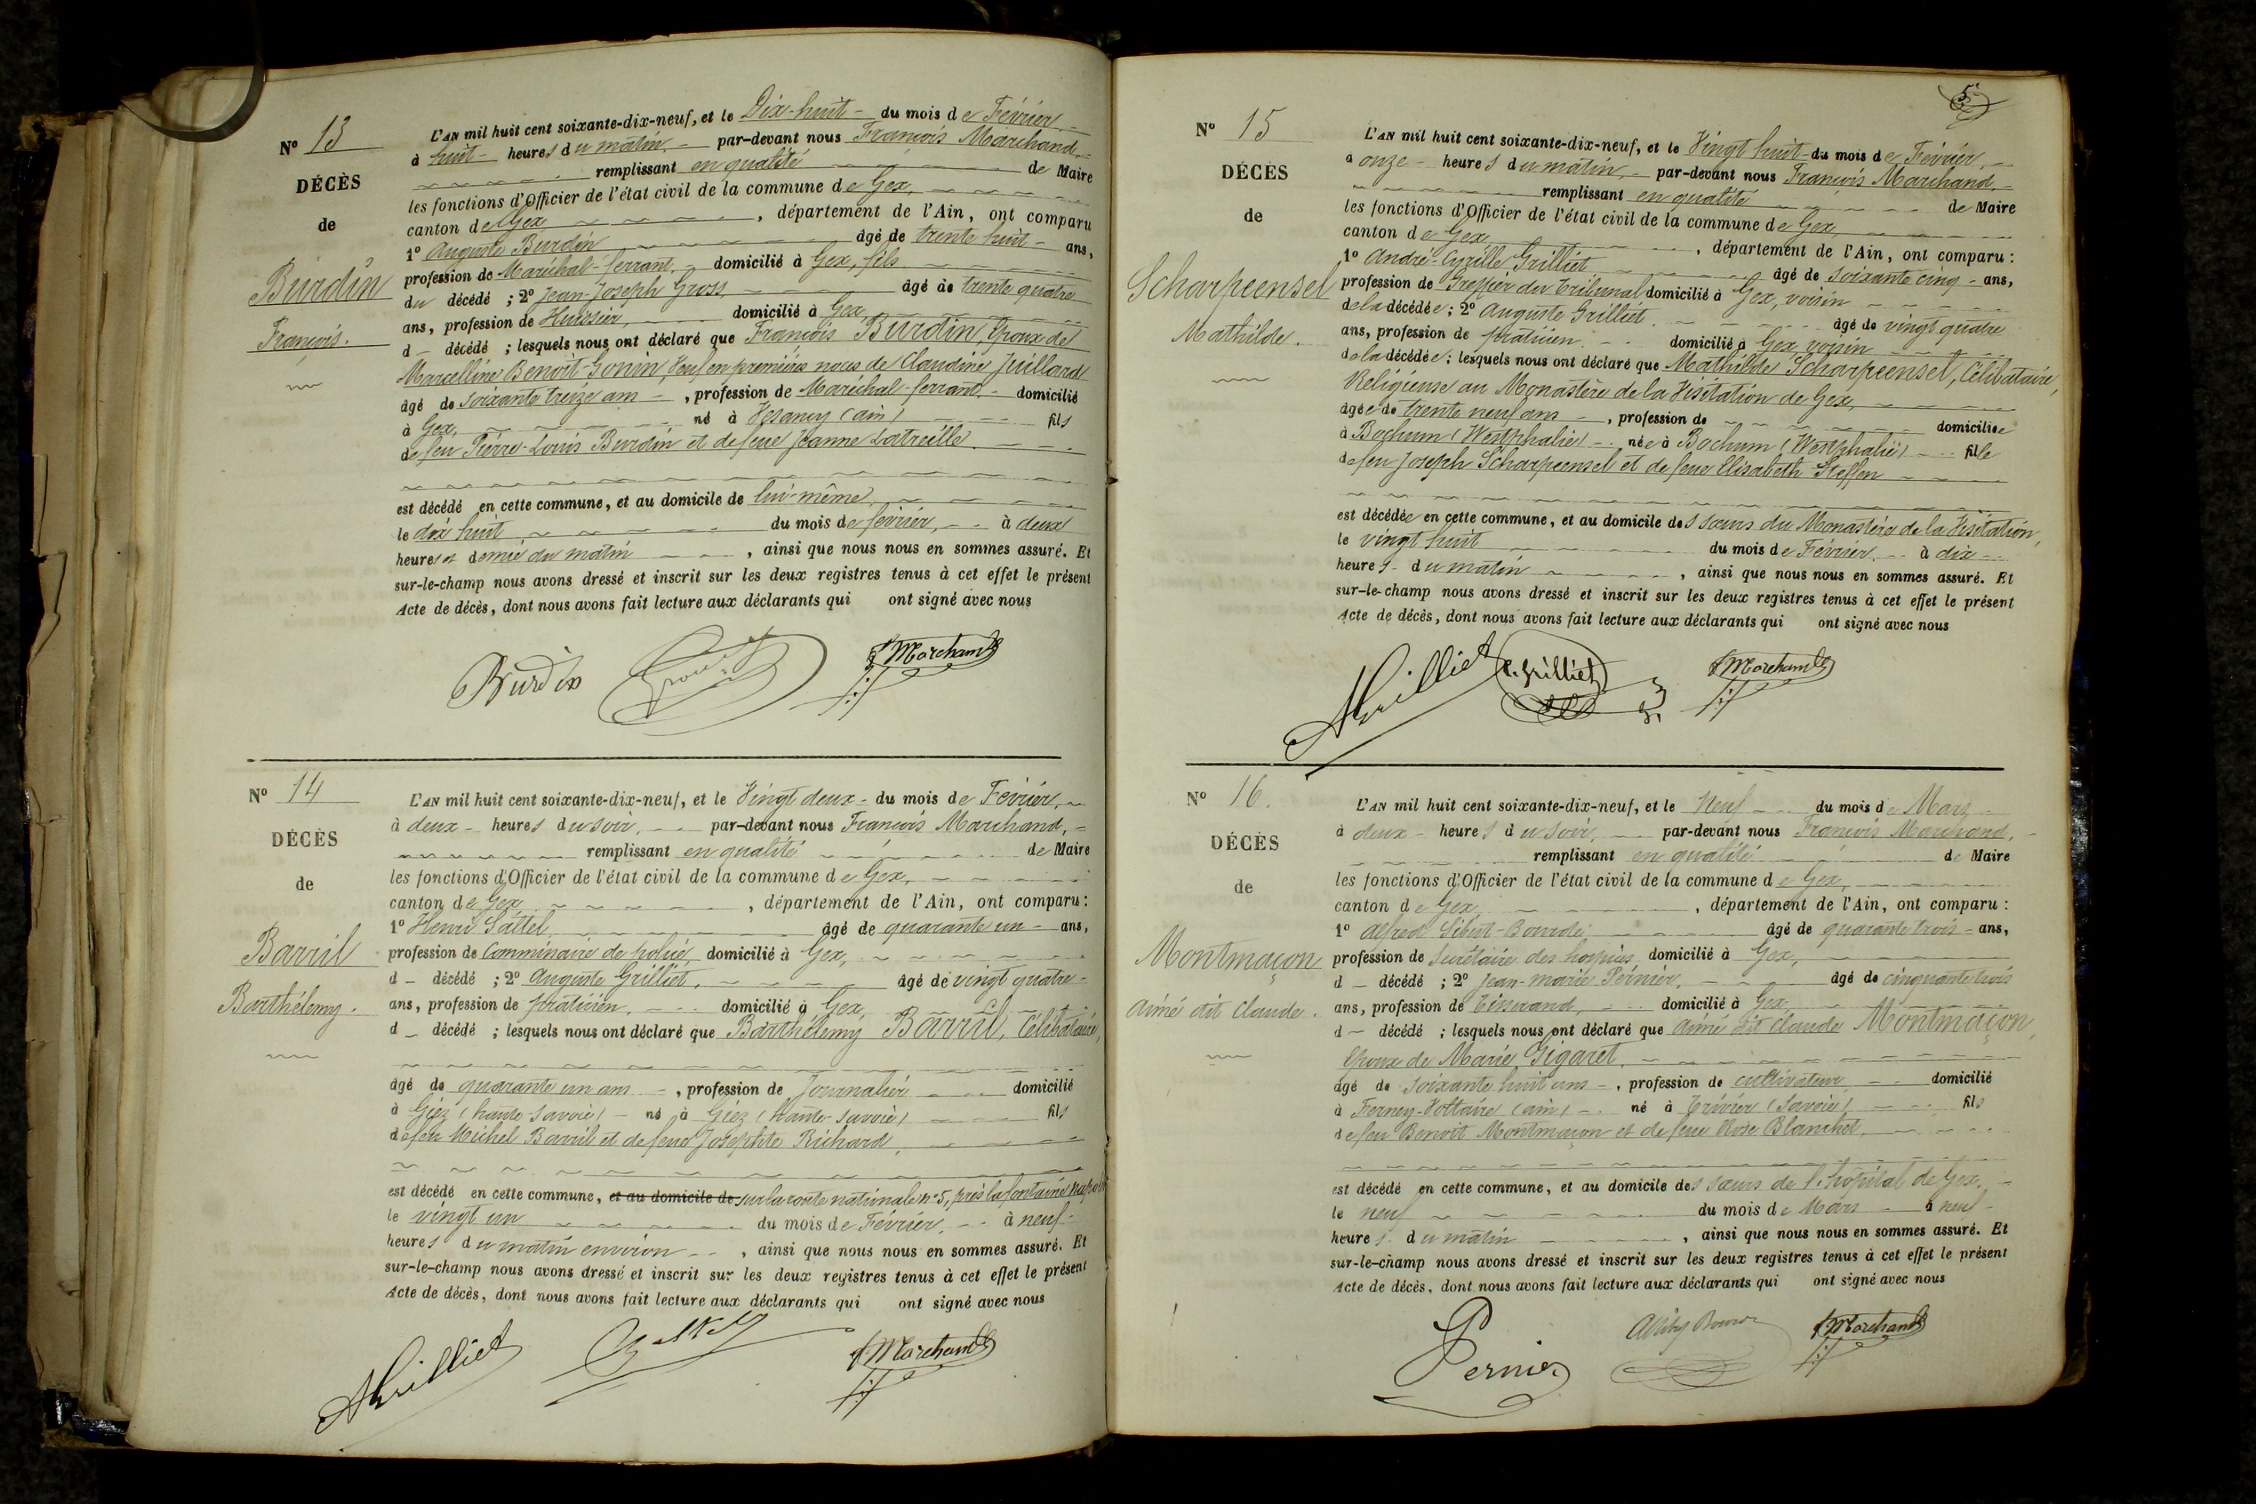 N° 13
DÉCÈS
de
Burdin
François.
L'AN mil huit cent soixante-dix-neuf, et le Dix-huit - du mois de Février
à huit - heures du matin - par-devant nous François Marchand,
remplissant en qualité de Maire
les fonctions d'Officier de l'état civil de la commune de Gex,
canton de Gex, département de l'Ain, ont comparu
1° Auguste Burdin âgé de trente huit - ans,
profession de Maréchal-ferrant, domicilié à Gex, fils
du décédé ; 2° Jean-Joseph Gross, âgé de trente quatre
ans, profession de Huissier, domicilié à Gex,
d - décédé ; lesquels nous ont déclaré que François Burdin, Epoux de
Marcelline Benoit-Gonin, Veuf en premières noces de Claudine Juillard
âgé de soixante treize ans - , profession de Maréchal-ferrant - domicilié
à Gex, né à Vesancy (ain) fils
de feu Pierre-Louis Burdin et de feue Jeanne Latreille.
est décédé en cette commune, et au domicile de lui-même,
le dix huit du mois de février, à deux
heures et demie du matin , ainsi que nous nous en sommes assuré. Et
sur-le-champ nous avons dressé et inscrit sur les deux registres tenus à cet effet le présent
Acte de décès, dont nous avons fait lecture aux déclarants qui ont signé avec nous
Burdin
F Marchand
N° 14
DÉCÈS
de
Barril
Barthélemy.
L'AN mil huit cent soixante-dix-neuf, et le Vingt deux - du mois de Février,
à deux - heures du soir, par-devant nous François Marchand, -
remplissant en qualité de Maire
les fonctions d'Officier de l'état civil de la commune de Gex,
canton de Gex , département de l'Ain, ont comparu :
1° Henri Sattel, âgé de quarante un - ans,
profession de Commissaire de police, domicilié à Gex,
d - décédé ; 2° Auguste Grilliet, âgé de vingt quatre -
ans, profession de praticien, domicilié à Gex,
d - décédé ; lesquels nous ont déclaré que Barthélemy Barril, Célibataire,
âgé de quarante un ans - , profession de Journalier domicilié
à Giez (haute Savoie) - né à Giez (haute Savoie) fils
de feu Michel Barril et de feue Josephte Richard,
est décédé en cette commune, et au domicile de sur la route nationale n° 5, près la fontaine
le vingt un du mois de Février, à neuf -
heures du matin environ , ainsi que nous nous en sommes assuré. Et
sur-le-champ nous avons dressé et inscrit sur les deux registres tenus à cet effet le présent
Acte de décès, dont nous avons fait lecture aux déclarants qui ont signé avec nous
AGrilliet
F Marchand
5
N° 15
DÉCÈS
de
Scharpeensel
Mathilde.
L'AN mil huit cent soixante-dix-neuf, et le Vingt huit - du mois de Février
à onze - heures du matin, - par-devant nous François Marchand, -
remplissant en qualité de Maire
les fonctions d'Officier de l'état civil de la commune de Gex,
canton de Gex, , département de l'Ain, ont comparu :
1° André-Cyrille Grilliet âgé de soixante cinq - ans,
profession de Greffier du tribunal domicilié à Gex, voisin
de la décédée ; 2° Auguste Grilliet. âgé de vingt quatre
ans, profession de praticien. domicilié à Gex voisin
de la décédée ; lesquels nous ont déclaré que Mathilde Scharpeensel, Célibataire,
Religieuse au Monastère de la Visitation de Gex,
âgée de trente neuf ans - , profession de domiciliée
à Bochum (Westphalie) - née à Bochum (Westphalie) fille
de feu Joseph Scharpeensel et de feue Elisabeth Steffen
est décédée en cette commune, et au domicile des sœurs du Monastère de la Visitation,
le vingt huit du mois de Février à dix
heures - du matin , ainsi que nous nous en sommes assuré. Et
sur-le-champ nous avons dressé et inscrit sur les deux registres tenus à cet effet le présent
Acte de décès, dont nous avons fait lecture aux déclarants qui ont signé avec nous
AGrilliet C. Grilliet F Marchand
N° 16.
DÉCÈS
de
Montmaçon
Aimé dit Claude.
L'AN mil huit cent soixante-dix-neuf, et le Neuf du mois de Mars -
à deux - heures du soir, par-devant nous François Marchand, -
remplissant en qualité de Maire
les fonctions d'Officier de l'état civil de la commune de Gex,
canton de Gex , département de l'Ain, ont comparu :
1° Alfred Sibut-Bourde âgé de quarante trois - ans,
profession de Secrétaire des hospices, domicilié à Gex,
d - décédé ; 2° Jean-Marie Pernier, âgé de cinquante trois
ans, profession de Tisserand, domicilié à Gex
d - décédé ; lesquels nous ont déclaré que Aimé dit Claude Montmaçon,
Epoux de Marie Gigaret,
âgé de soixante huit ans - , profession de cultivateur domicilié
à Ferney-Voltaire (ain) - né à Trivier (Savoie) fils
de feu Benoit Montmaçon et de feue Rose Blanchet,
est décédé en cette commune, et au domicile des sœurs de l'hôpital de Gex. -
le neuf du mois de Mars à neuf -
heures - du matin , ainsi que nous nous en sommes assuré. Et
sur-le-champ nous avons dressé et inscrit sur les deux registres tenus à cet effet le présent
Acte de décès, dont nous avons fait lecture aux déclarants qui ont signé avec nous
Pernier
F Marchand